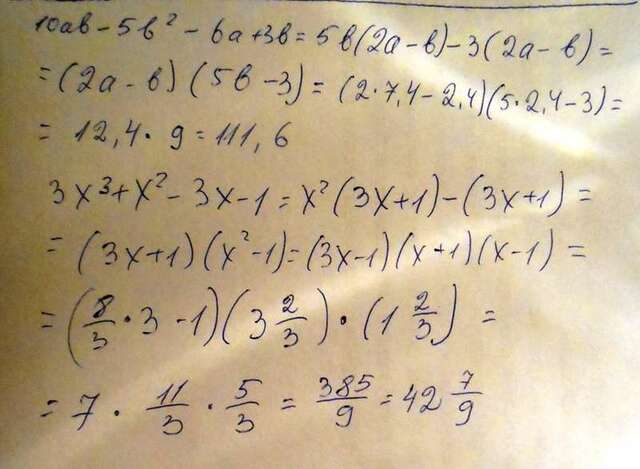 10ab - 5b² - 6a + 3b = 5b(2a - b) - 3(2a - b) =
= (2a - b) (5b - 3) = (2·7,4 - 2,4)(5·2,4 - 3) =
= 12,4 · 9 = 111,6
3x³ + x² - 3x - 1 = x² (3x + 1) - (3x + 1) =
= (3x + 1) (x² - 1) = (3x - 1) (x + 1) (x - 1) =
= (8/3 · 3 - 1) (3 2/3) · (1 2/3) =
= 7 · 11/3 · 5/3 = 385/9 = 42 7/9